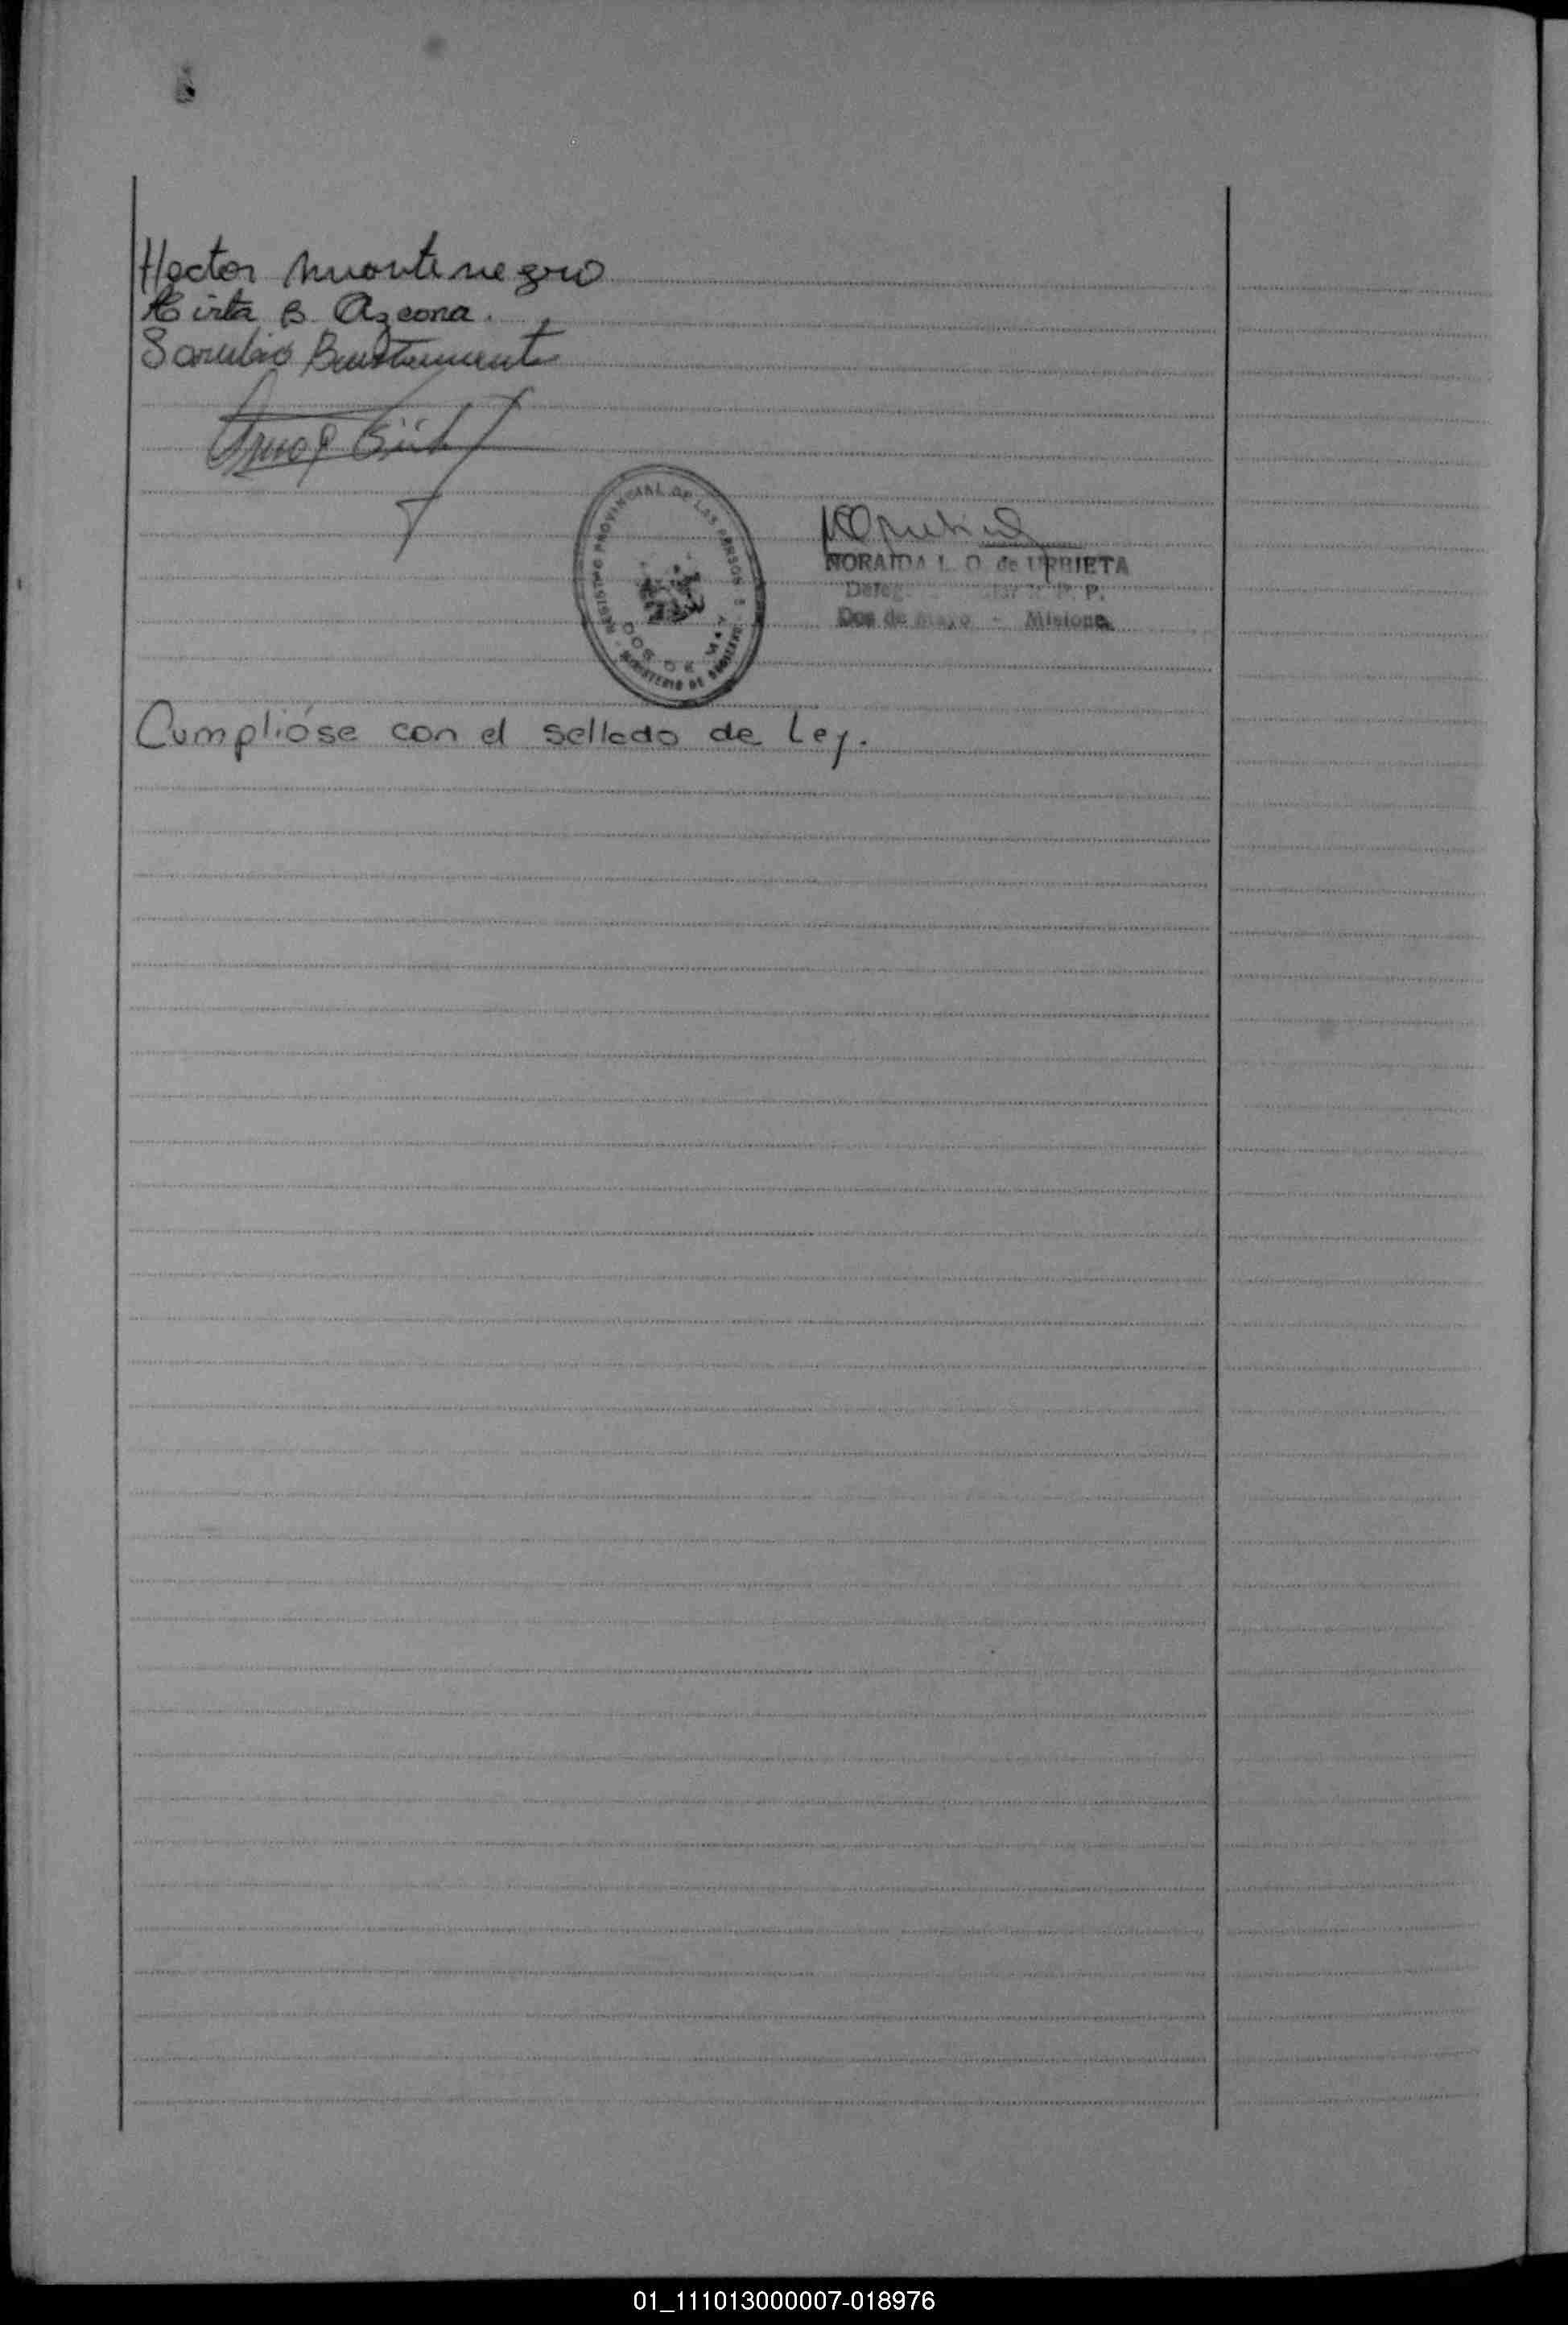 Hector Montenegro
Mirta B. Azcona.
Bustamante
REGISTRO PROVINCIAL DE LAS PERSONAS
DOS DE MAYO
MINISTERIO DE GOBIERNO
NORAIDA L. O. de URRIETA
R. P. P.
Dos de Mayo - Misiones
Cumplióse con el sellado de Ley.
01_111013000007-018976